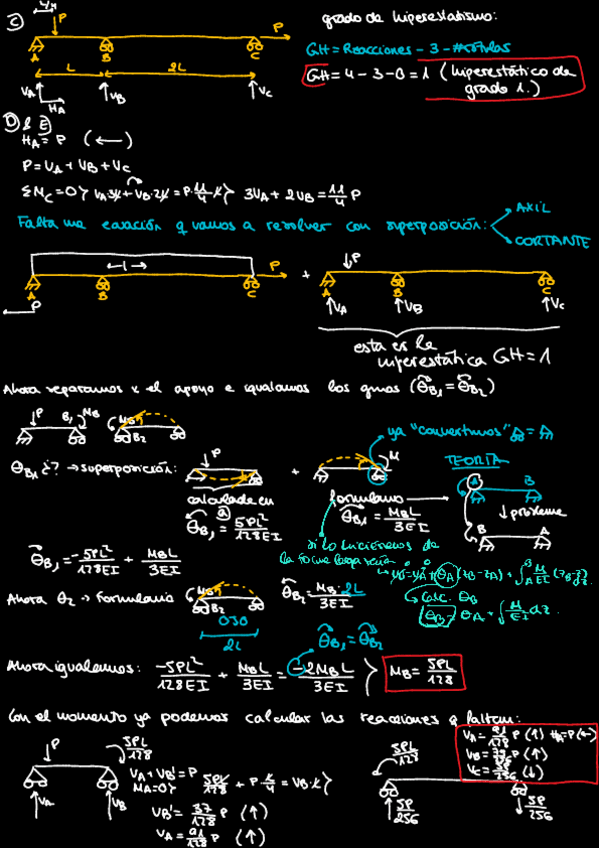 C)
L/4
P
P
A
B
C
L
2L
VA
HA
VB
VC
grado de hiperestatismo:
GH = Reacciones - 3 - #rótulas
GH = 4 - 3 - 0 = 1 (hiperestático de
grado 1.)
D) & E)
HA = P (←)
P = VA + VB + VC
ΣMC = 0} VA·3L + VB·2L = P·11/4·L} 3VA + 2VB = 11/4 P
Falta una ecuación q vamos a resolver con superposición:
AXIL
CORTANTE
P
A
B
C
P
+
P
A
B
C
VA
VB
VC
esta es la
hiperestática GH = 1
Ahora separamos x el apoyo e igualamos los giros (θB1 = θB2)
P
B1
MB
MB
B2
θB1 ¿? → superposición:
P
calculada en
a)
θB1 = 5PL²/128EI
+
M
formulario
θB1 = MBL/3EI
ya "convertimos"
TEORÍA
A
B
↓ próxime
B
A
si lo hiciéremos de
la forma larga sería
θB1 = -5PL²/128EI + MBL/3EI
calc. θB
θB = θA + ∫ M/EI dz
Ahora θ2 → Formulario
MB
B2
2L
θB2 = MB·2L/3EI
θB1 = θB2
Ahora igualamos: -5PL²/128EI + MBL/3EI = -2MBL/3EI } MB = 5PL/128
Con el momento ya podemos calcular las reacciones q faltan:
P
5PL/128
VA
VB
VA + VB' = P
MA = 0} 5PL/128 + P·L/4 = VB·L}
VB' = 37/128 P (↑)
VA = 91/128 P (↑)
5PL/128
5P/256
5P/256
VA = 91/128 P (↑) HA = P (←)
VB = P (↑)
VC = 5P/256 (↓)